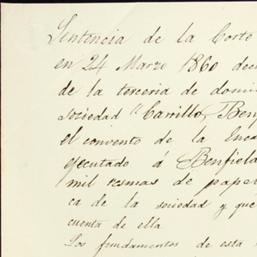 Sentencia de la Corte
en 24 Marzo 1860 dec
de la terceria de domi
Sociedad "Carrillo, Ben
el convento de la Enca
ejecutado á Benfield
mil resmas de pape
ca de la sociedad y que
cuenta de ella
Los fundamentos de esta